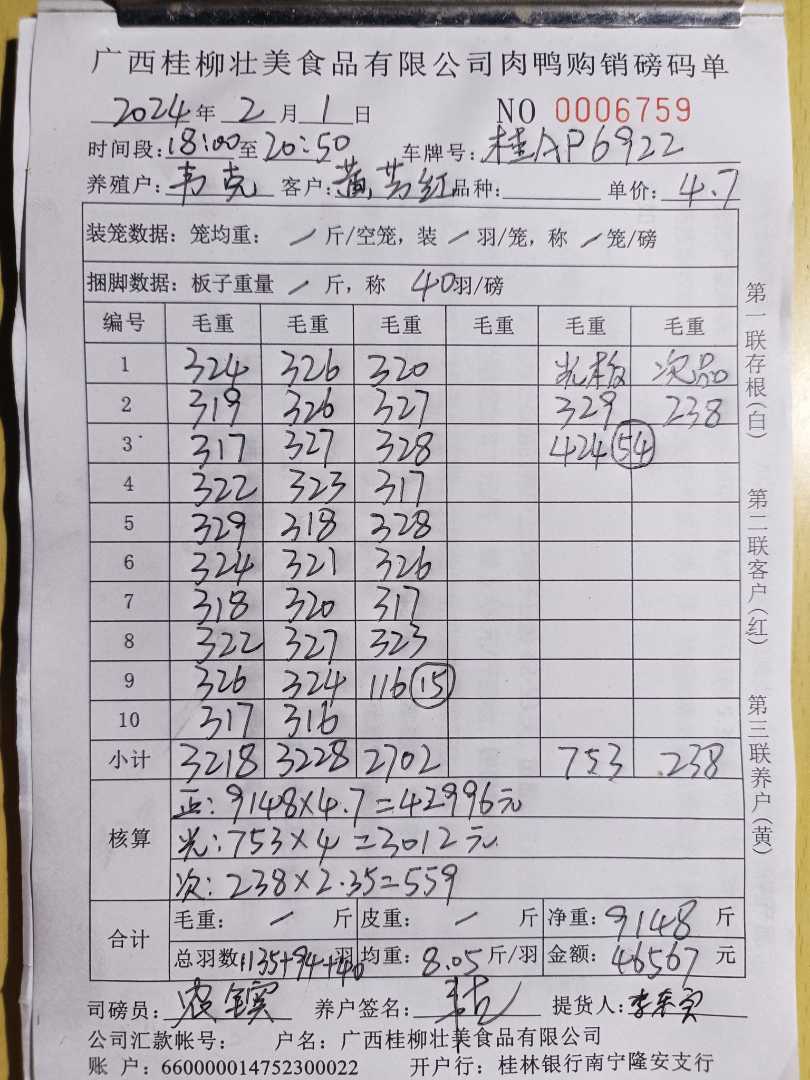 广西桂柳壮美食品有限公司肉鸭购销磅码单
2024年 2月 1日 NO 0006759
时间段:18:00至20:50 车牌号:桂AP6922
养殖户:韦克 客户:黄芳红 品种: 单价:4.7
装笼数据: 笼均重: / 斤/空笼, 装 / 羽/笼, 称 / 笼/磅
捆脚数据: 板子重量 / 斤, 称 40羽/磅
编号 毛重 毛重 毛重 毛重 毛重 毛重
1 324 326 320 光板 次品
2 319 326 327 329 238
3 317 327 328 424 54
4 322 323 317
5 329 318 328
6 324 321 326
7 318 320 317
8 322 327 323
9 326 324 116 15
10 317 316
小计 3218 3228 2702 753 238
核算
正:9148×4.7=42996元
光:753×4=3012元
次:238×2.35=559
合计
毛重: / 斤 皮重: / 斤 净重:9148 斤
总羽数:1135+94+40羽 均重:8.05斤/羽 金额:46567 元
司磅员: 养户签名: 提货人:
公司汇款帐号: 户名:广西桂柳壮美食品有限公司
账 户:660000014752300022 开户行:桂林银行南宁隆安支行
第一联存根(白)
第二联客户(红)
第三联养户(黄)